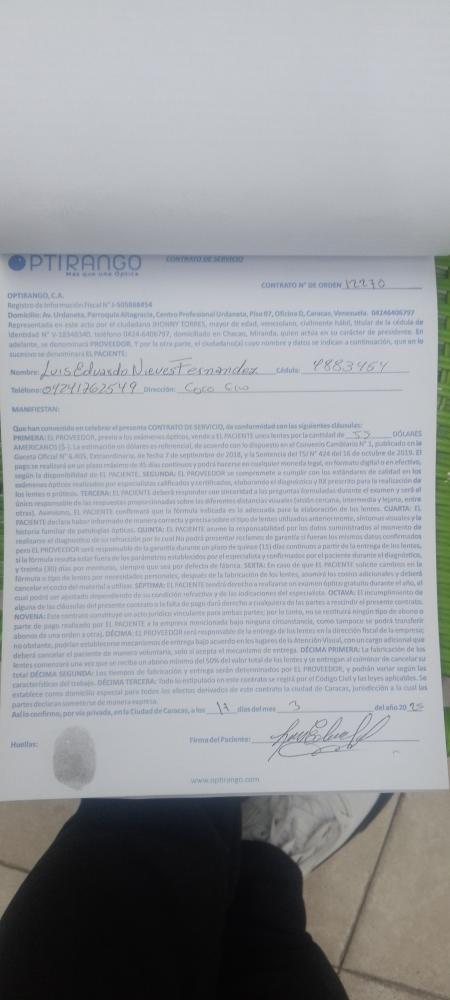 OPTIRANGO
Más que una Óptica
CONTRATO DE SERVICIO
CONTRATO N° DE ORDEN 12270
OPTIRANGO, C.A.
Registro de Información Fiscal N° J-505068454
Domicilio: Av. Urdaneta, Parroquia Altagracia, Centro Profesional Urdaneta, Piso 07, Oficina D, Caracas, Venezuela. 04246406797
Representada en este acto por el ciudadano JHONNY TORRES, mayor de edad, venezolano, civilmente hábil, titular de la cédula de
Identidad N° V-18348340, teléfono 0424-6406797, domiciliado en Chacao, Miranda, quien actúa en su carácter de presidente. En
adelante, se denominará PROVEEDOR. Y por la otra parte, el ciudadano(a) cuyo nombre y datos se indican a continuación, que en lo
sucesivo se denominará EL PACIENTE:
Nombre: Luis Eduardo Nieves Fernandez Cédula: 4883454
Teléfono: 04241262549 Dirección: Coco
MANIFIESTAN:
Que han convenido en celebrar el presente CONTRATO DE SERVICIO, de conformidad con las siguientes cláusulas:
PRIMERA: EL PROVEEDOR, previo a los exámenes ópticos, vende a EL PACIENTE unos lentes por la cantidad de 55 DÓLARES
AMERICANOS ($-). La estimación en dólares es referencial, de acuerdo con lo dispuesto en el Convenio Cambiario N° 1, publicado en la
Gaceta Oficial N° 6.405, Extraordinario, de fecha 7 de septiembre de 2018, y la Sentencia del TSJ N° 424 del 16 de octubre de 2019. El
pago se realizará en un plazo máximo de 45 días continuos y podrá hacerse en cualquier moneda legal, en formato digital o en efectivo,
según la disponibilidad de EL PACIENTE. SEGUNDA: EL PROVEEDOR se compromete a cumplir con los estándares de calidad en los
exámenes ópticos realizados por especialistas calificados y certificados, elaborando el diagnóstico y RX prescrito para la realización de
los lentes o prótesis. TERCERA: EL PACIENTE deberá responder con sinceridad a las preguntas formuladas durante el examen y será el
único responsable de las respuestas proporcionadas sobre las diferentes distancias visuales (visión cercana, intermedia y lejana, entre
otras). Asimismo, EL PACIENTE confirmará que la fórmula indicada es la adecuada para la elaboración de los lentes. CUARTA: EL
PACIENTE declara haber informado de manera correcta y precisa sobre el tipo de lentes utilizados anteriormente, síntomas visuales y la
historia familiar de patologías ópticas. QUINTA: EL PACIENTE asume la responsabilidad por los datos suministrados al momento de
realizarse el diagnóstico de su refracción por lo cual No podrá presentar reclamos de garantía si fueran los mismos datos confirmados
pero EL PROVEEDOR será responsable de la garantía durante un plazo de quince (15) días continuos a partir de la entrega de los lentes,
si la fórmula resulta estar fuera de los parámetros establecidos por el especialista y confirmados por el paciente durante el diagnóstico,
y treinta (30) días por monturas, siempre que sea por defecto de fábrica. SEXTA: En caso de que EL PACIENTE solicite cambios en la
fórmula o tipo de lentes por necesidades personales, después de la fabricación de los lentes, asumirá los costos adicionales y deberá
cancelar el costo del material a utilizar. SÉPTIMA: EL PACIENTE tendrá derecho a realizarse un examen óptico gratuito durante el año, el
cual podrá ser ajustado dependiendo de su condición refractiva y de las indicaciones del especialista. OCTAVA: El incumplimiento de
alguna de las cláusulas del presente contrato o la falta de pago dará derecho a cualquiera de las partes a rescindir el presente contrato.
NOVENA: Este contrato constituye un acto jurídico vinculante para ambas partes; por lo tanto, no se restituirá ningún tipo de abono o
parte de pago realizado por EL PACIENTE a la empresa mencionada bajo ninguna circunstancia, como tampoco se podrá transferir
abonos de una orden a otra). DÉCIMA: EL PROVEEDOR será responsable de la entrega de los lentes en la dirección fiscal de la empresa;
no obstante, podrían establecerse mecanismos de entrega bajo acuerdo en los lugares de la Atención Visual, con cargo adicional que
deberá cancelar el paciente de manera voluntaria, solo si acepta el mecanismo de entrega. DÉCIMA PRIMERA: La fabricación de los
lentes comenzará una vez que se reciba un abono mínimo del 50% del valor total de los lentes y se entregan al culminar de cancelar su
total DÉCIMA SEGUNDA: Los tiempos de fabricación y entrega serán determinados por EL PROVEEDOR, y podrán variar según las
características del trabajo. DÉCIMA TERCERA: Todo lo estipulado en este contrato se regirá por el Código Civil y las leyes aplicables. Se
establece como domicilio especial para todos los efectos derivados de este contrato la ciudad de Caracas, jurisdicción a la cual las
partes declaran someterse de manera expresa.
Así lo confirmo, por vía privada, en la Ciudad de Caracas, a los días del mes 3 del año 2025
Huellas:
Firma del Paciente:
www.optirango.com